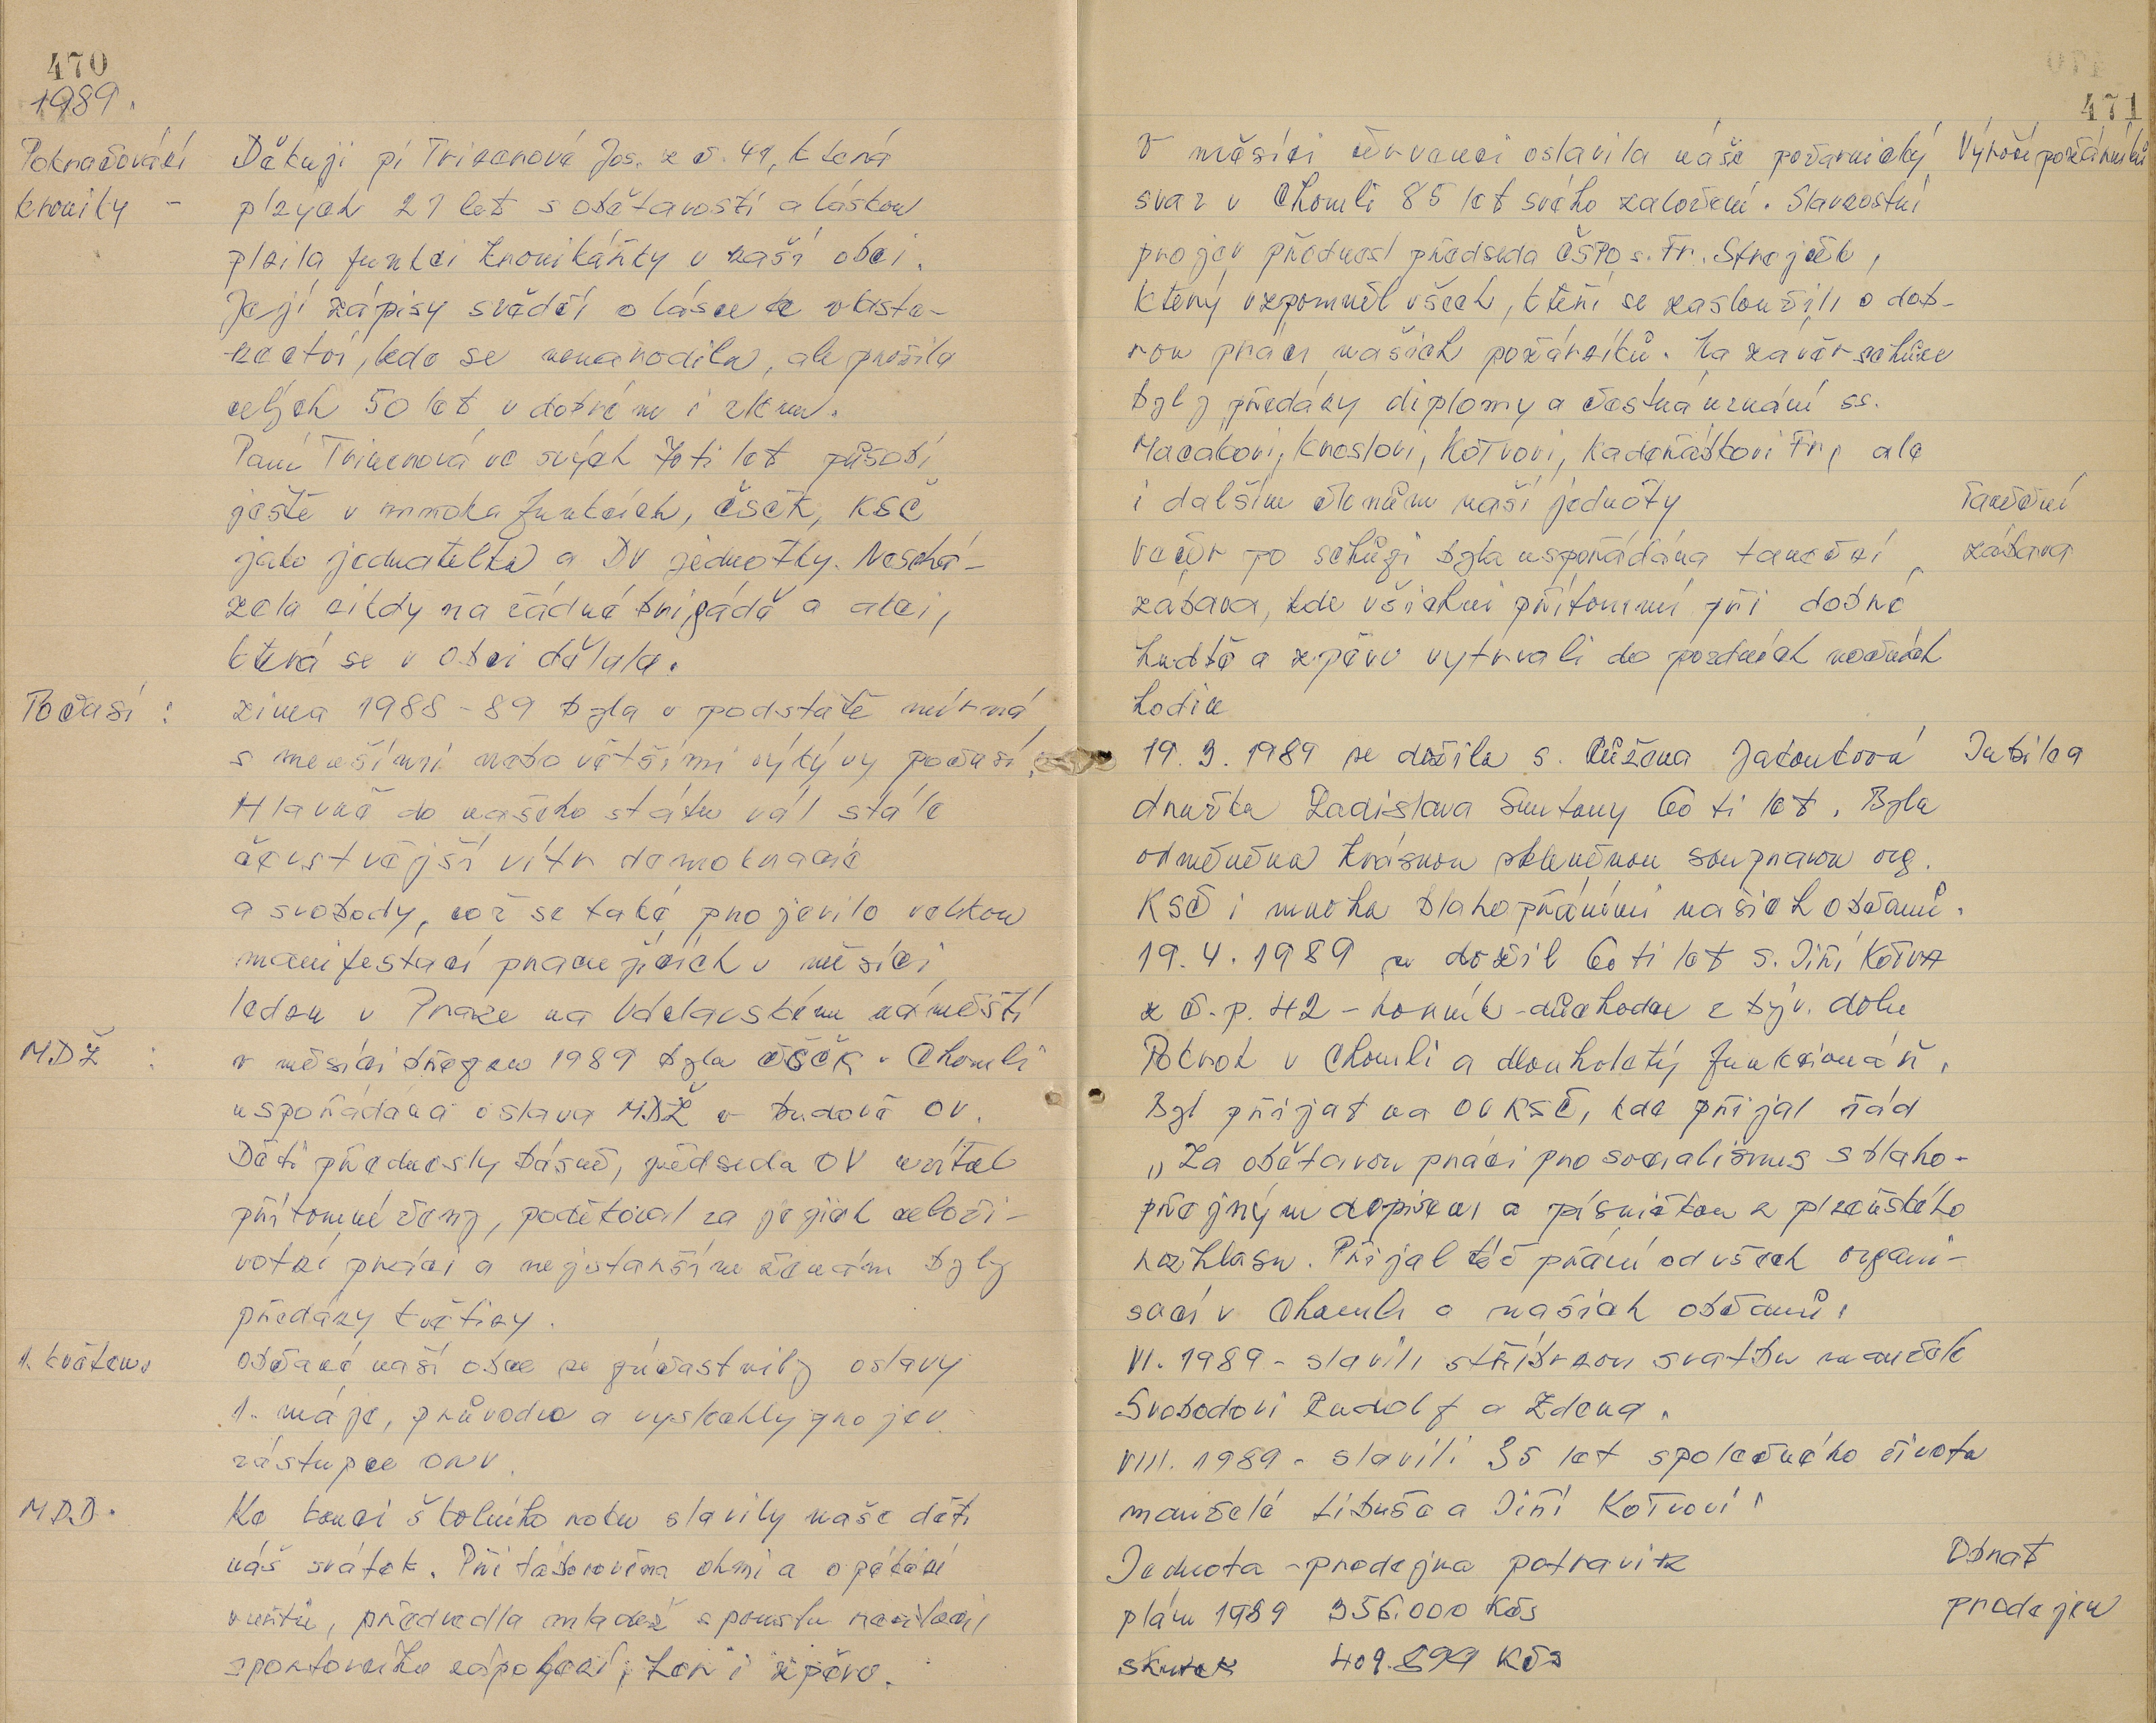 470
1989.
Pokračování
kroniky -
Děkuji pí Tricerové Jos. z č. 41, která
plných 21 let s obětavostí a láskou
plnila funkci kronikářky v naší obci.
Její zápisy svědčí o lásce k vlaste-
nectví, kde se nenarodila, ale prožila
celých 50 let v dobrém i zlém.
Paní Tricerová ve svých 70ti let působí
ještě v mnoha funkcích, ČSČK, KSČ
jako jednatelka a DV jednotky. Neschá-
zela nikdy na žádné brigádě a akci,
která se v obci dělala.
Počasí :
zima 1988-89 byla v podstatě mírná
s menšími nebo většími výkyvy počasí.
Hlavně do našeho státu vál stále
čerstvější vítr demokracie
a svobody, což se také projevilo velkou
manifestací pracujících v měsíci
lednu v Praze na Václavském náměstí
MDŽ :
v měsíci březnu 1989 byla ČSČK v Chomli
uspořádána oslava MDŽ v budově OV.
Děti přednesly básně, předseda OV uvítal
přítomné ženy, poděkoval za jejich celoži-
votní práci a nejstarším ženám byly
předány květiny.
1. květen.
občané naší obce se zúčastnily oslavy
1. máje, průvodu a vyslechly projev
zástupce ONV.
MDD.
Ke konci školního roku slavily naše děti
svátek. Při táborovém ohni a opékání
vuřtů, předvedla mládež spoustu recitací,
sportovního zápolení, her i zpěvu.
471
V měsíci červenci oslavila náše požarnický
svaz v Chomli 85 let svého založení. Slavnostní
projev přednesl předseda ČSPO s. Fr. Strejček,
který vzpomněl všech, kteří se zasloužili o dob-
rou práci našich požárníků. Na závěr schůze
byly předány diplomy a čestná uznání ss.
Macákovi, Kroslovi, Koťvovi, Kadeřábkovi Fr, ale
i dalším členům naší jednoty
Výročí požárníků
večer po schůzi byla uspořádána taneční
zábava, kde všichni přítomní při dobré
hudbě a zpěvu vytrvali do pozdních nočních
hodin
Taneční
zábava
19. 3. 1989 se dožila s. Růžena Jakoubková
družka Ladislava Smutny 60 ti let. Byla
odměněna krásnou skleněnou soupravou org.
KSČ i mnoha blahopřáními našich občanů.
Jubilea
19. 4. 1989 se dožil 60 ti let s. Jiří Koťva
z č.p. 42 - horník-důchodce z býv. dolu
Pokrok v Chomli a dlouholetý funkcionář.
Byl přijat na OV KSČ, kde přijal řád
„Za obětavou práci pro socialismus s blaho-
přejným dopisem a písničkou z plzeňského
rozhlasu. Přijal též přání od všech organi-
sací v Chomli a našich občanů.
VI. 1989 - slavili stříbrnou svatbu manželé
Svobodovi Rudolf a Zdena.
VIII. 1989 - slavili 35 let společného života
manželé Libuše a Jiří Koťvovi.
Jednota - prodejna potravin
plán 1989 356.000 Kčs
skutek 409.899 Kčs
Obrat
prodejen